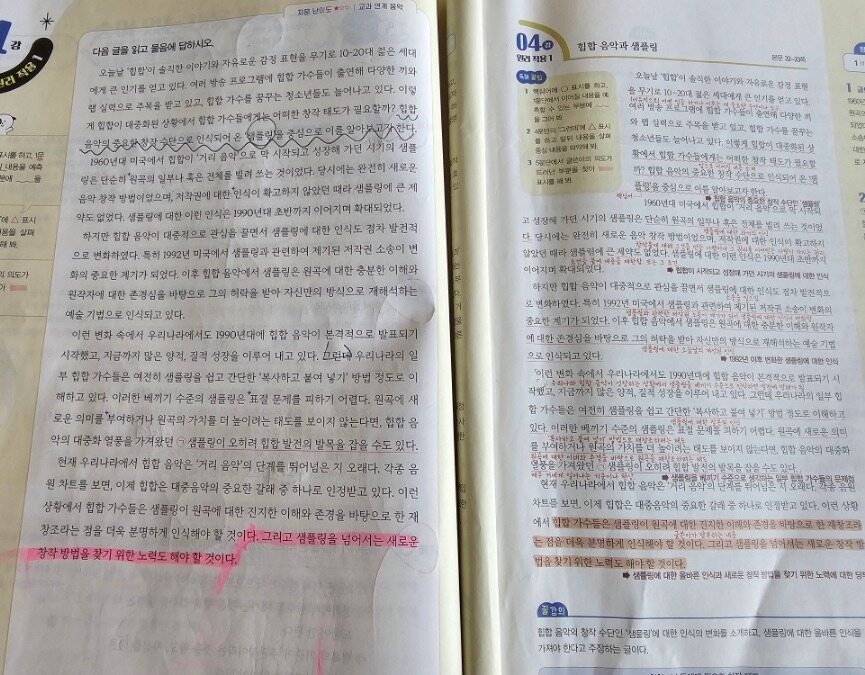 강
원리 적용 1
지문 난이도 ★☆☆ 교과 연계 음악
다음 글을 읽고 물음에 답하시오.
오늘날 '힙합'이 솔직한 이야기와 자유로운 감정 표현을 무기로 10~20대 젊은 세대
에게 큰 인기를 얻고 있다. 여러 방송 프로그램에 힙합 가수들이 출연해 다양한 끼와
랩 실력으로 주목을 받고 있고, 힙합 가수를 꿈꾸는 청소년들도 늘어나고 있다. 이렇
게 힙합이 대중화된 상황에서 힙합 가수들에게는 어떠한 창작 태도가 필요할까? 힙합
음악의 중요한 창작 수단으로 인식되어 온 샘플링을 중심으로 이를 알아보고자 한다.
1960년대 미국에서 힙합이 '거리 음악'으로 막 시작되고 성장해 가던 시기의 샘플
링은 단순히 원곡의 일부나 혹은 전체를 빌려 쓰는 것이었다. 당시에는 완전히 새로운
음악 창작 방법이었으며, 저작권에 대한 인식이 확고하지 않았던 때라 샘플링에 큰 제
약도 없었다. 샘플링에 대한 이런 인식은 1990년대 초반까지 이어지며 확대되었다.
하지만 힙합 음악이 대중적으로 관심을 끌면서 샘플링에 대한 인식도 점차 발전적
으로 변화하였다. 특히 1992년 미국에서 샘플링과 관련하여 제기된 저작권 소송이 변
화의 중요한 계기가 되었다. 이후 힙합 음악에서 샘플링은 원곡에 대한 충분한 이해와
원작자에 대한 존경심을 바탕으로 그의 허락을 받아 자신만의 방식으로 재해석하는
예술 기법으로 인식되고 있다.
이런 변화 속에서 우리나라에서도 1990년대에 힙합 음악이 본격적으로 발표되기
시작했고, 지금까지 많은 양적, 질적 성장을 이루어 내고 있다. 그런데 우리나라의 일
부 힙합 가수들은 여전히 샘플링을 쉽고 간단한 '복사하고 붙여 넣기' 방법 정도로 이
해하고 있다. 이러한 베끼기 수준의 샘플링은 표절 문제를 피하기 어렵다. 원곡에 새
로운 의미를 부여하거나 원곡의 가치를 더 높이려는 태도를 보이지 않는다면, 힙합 음
악의 대중화 열풍을 가져왔던 ㉠샘플링이 오히려 힙합 발전의 발목을 잡을 수도 있다.
현재 우리나라에서 힙합 음악은 '거리 음악'의 단계를 뛰어넘은 지 오래다. 각종 음
원 차트를 보면, 이제 힙합은 대중음악의 중요한 갈래 중 하나로 인정받고 있다. 이런
상황에서 힙합 가수들은 샘플링이 원곡에 대한 진지한 이해와 존경을 바탕으로 한 재
창조라는 점을 더욱 분명하게 인식해야 할 것이다. 그리고 샘플링을 넘어서는 새로운
창작 방법을 찾기 위한 노력도 해야 할 것이다.
04강
원리 적용 1
힙합 음악과 샘플링
1 핵심어에 ○ 표시를 하고,
1문단에서 이어질 내용을 예
측할 수 있는 부분에
을 그어 봐.
2 4문단의 '그런데'에 △ 표시
를 하고 앞뒤 내용을 살펴
중심 내용을 파악해 봐.
3 5문단에서 글쓴이의 의도가
드러난 부분을 찾아
표시해 봐.
오늘날 '힙합'이 솔직한 이야기와 자유로운 감정 표현
을 무기로 10~20대 젊은 세대에게 큰 인기를 얻고 있다.
여러 방송 프로그램에 힙합 가수들이 출연해 다양한 끼
와 랩 실력으로 주목을 받고 있고, 힙합 가수를 꿈꾸는
청소년들도 늘어나고 있다. 이렇게 힙합이 대중화된 상
황에서 힙합 가수들에게는 어떠한 창작 태도가 필요할
까? 힙합 음악의 중요한 창작 수단으로 인식되어 온 샘
플링을 중심으로 이를 알아보고자 한다.
핵심어
➡ 힙합 음악의 중요한 창작 수단인 '샘플링'
1960년대 미국에서 힙합이 '거리 음악'으로 막 시작되
고 성장해 가던 시기의 샘플링은 단순히 원곡의 일부나 혹은 전체를 빌려 쓰는 것이었
다. 당시에는 완전히 새로운 음악 창작 방법이었으며, 저작권에 대한 인식이 확고하지
않았던 때라 샘플링에 큰 제약도 없었다. 샘플링에 대한 이런 인식은 1990년대 초반까지
이어지며 확대되었다.
➡ 힙합이 시작되고 성장해 가던 시기의 샘플링에 대한 인식
하지만 힙합 음악이 대중적으로 관심을 끌면서 샘플링에 대한 인식도 점차 발전적으
로 변화하였다. 특히 1992년 미국에서 샘플링과 관련하여 제기된 저작권 소송이 변화의
중요한 계기가 되었다. 이후 힙합 음악에서 샘플링은 원곡에 대한 충분한 이해와 원작자
에 대한 존경심을 바탕으로 그의 허락을 받아 자신만의 방식으로 재해석하는 예술 기법
으로 인식되고 있다.
➡ 1992년 이후 변화한 샘플링에 대한 인식
이런 변화 속에서 우리나라에서도 1990년대에 힙합 음악이 본격적으로 발표되기 시
작했고, 지금까지 많은 양적, 질적 성장을 이루어 내고 있다. 그런데 우리나라의 일부 힙
합 가수들은 여전히 샘플링을 쉽고 간단한 '복사하고 붙여 넣기' 방법 정도로 이해하고
있다. 이러한 베끼기 수준의 샘플링은 표절 문제를 피하기 어렵다. 원곡에 새로운 의미
를 부여하거나 원곡의 가치를 더 높이려는 태도를 보이지 않는다면, 힙합 음악의 대중화
열풍을 가져왔던 ㉠샘플링이 오히려 힙합 발전의 발목을 잡을 수도 있다.
➡ 샘플링을 베끼기 수준으로 생각하는 일부 힙합 가수들의 문제점
현재 우리나라에서 힙합 음악은 '거리 음악'의 단계를 뛰어넘은 지 오래다. 각종 음원
차트를 보면, 이제 힙합은 대중음악의 중요한 갈래 중 하나로 인정받고 있다. 이런 상황
에서 힙합 가수들은 샘플링이 원곡에 대한 진지한 이해와 존경을 바탕으로 한 재창조라
는 점을 더욱 분명하게 인식해야 할 것이다. 그리고 샘플링을 넘어서는 새로운 창작 방
법을 찾기 위한 노력도 해야 할 것이다.
➡ 샘플링에 대한 올바른 인식과 새로운 창작 방법을 찾기 위한 노력에 대한 당부
꼼강의
힙합 음악의 창작 수단인 '샘플링'에 대한 인식의 변화를 소개하고, 샘플링에 대한 올바른 인식을
가져야 한다고 주장하는 글이다.